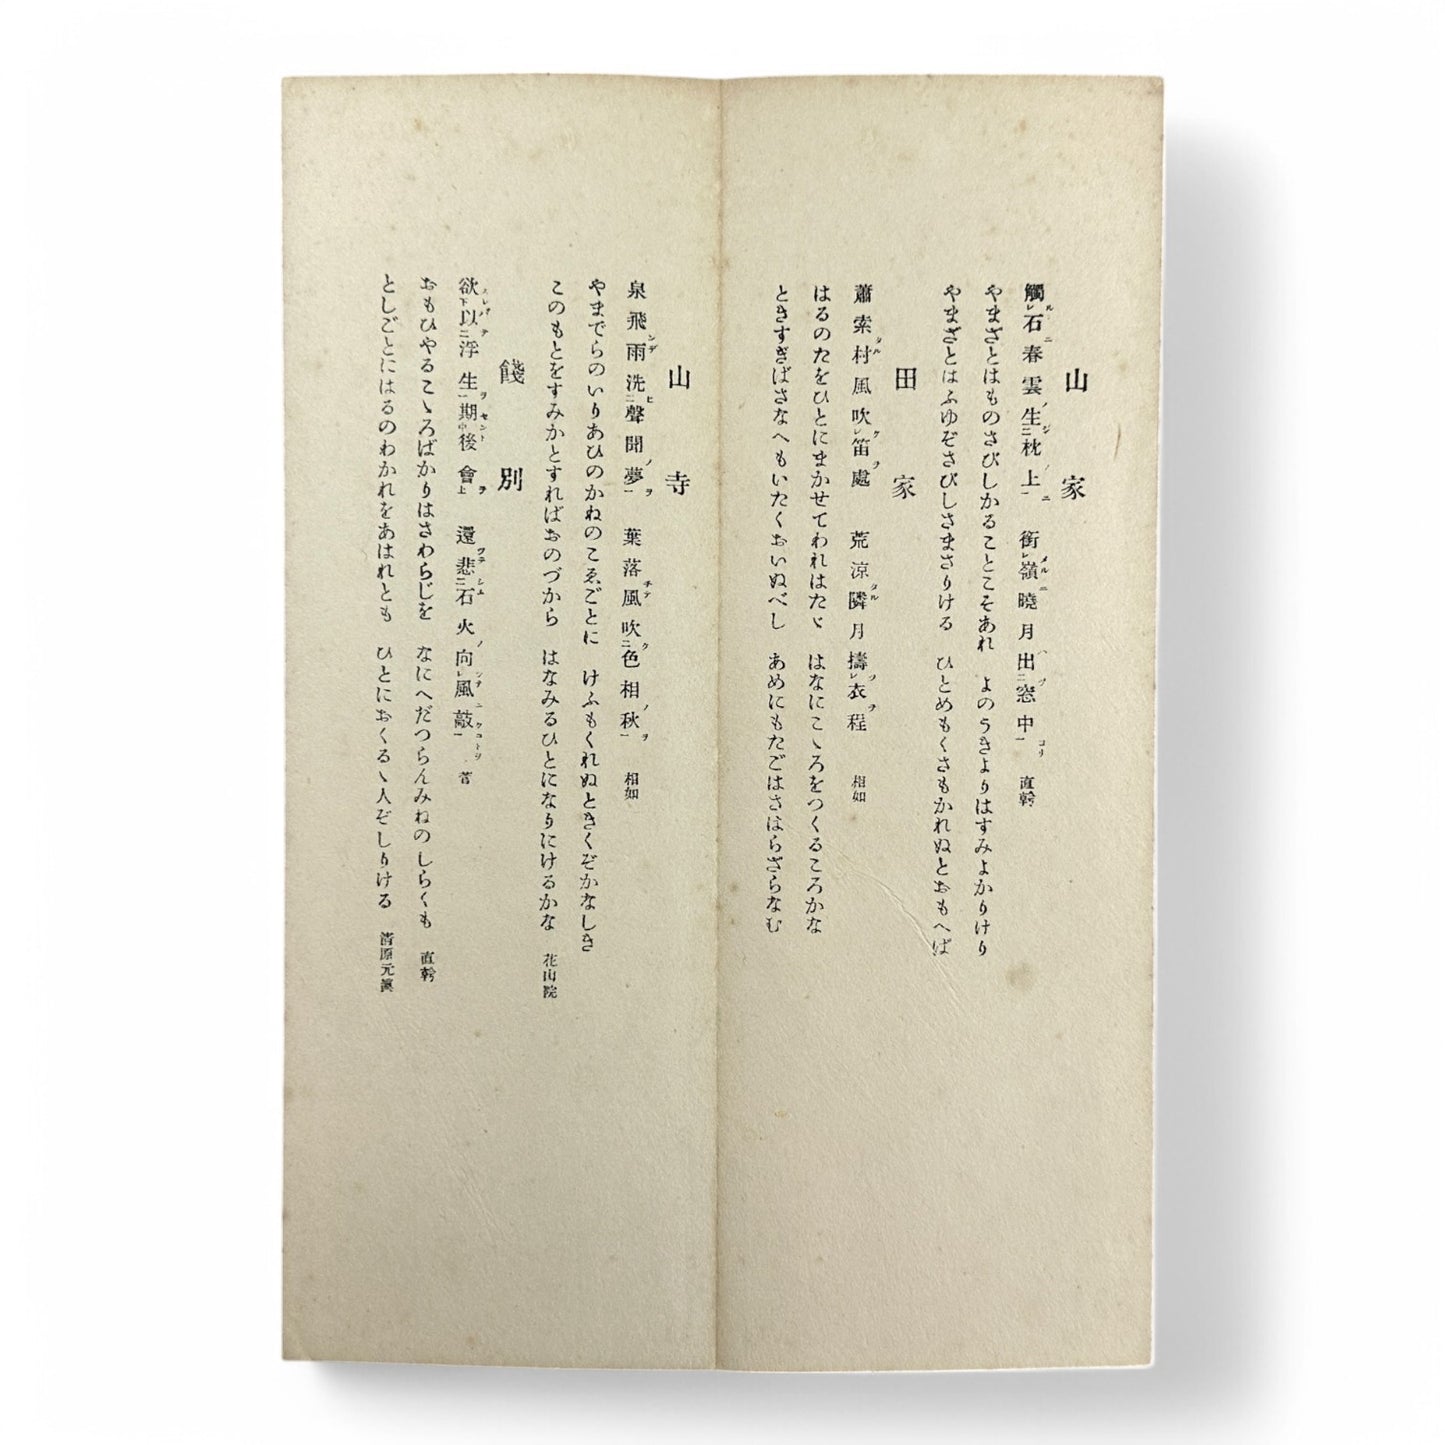 山家
觸レ石春雲生二枕上一　銜レ嶺曉月出二窓中一　直幹
やまざとはものさびしかることこそあれ　よのうきよりはすみよかりけり
やまざとはふゆぞさびしさまさりける　ひとめもくさもかれぬとおもへば
田家
蕭索村風吹レ笛處　荒涼隣月擣レ衣程　相如
はるのたをひとにまかせてわれはたゞ　はなにこゝろをつくるころかな
ときすぎばさなへもいたくおいぬべし　あめにもたごはさはらざらなむ
山寺
泉飛雨洗二聲聞夢一　葉落風吹二色相秋一　相如
やまでらのいりあひのかねのこゑごとに　けふもくれぬときくぞかなしき
このもとをすみかとすればおのづから　はなみるひとになりにけるかな　花山院
餞別
欲下以二浮生一期中後會上　還悲二石火向レ風敲一　菅
おもひやるこゝろばかりはさわらじを　なにへだつらんみねのしらくも　直幹
としごとにはるのわかれをあはれとも　ひとにおくるゝ人ぞしりける　清原元眞